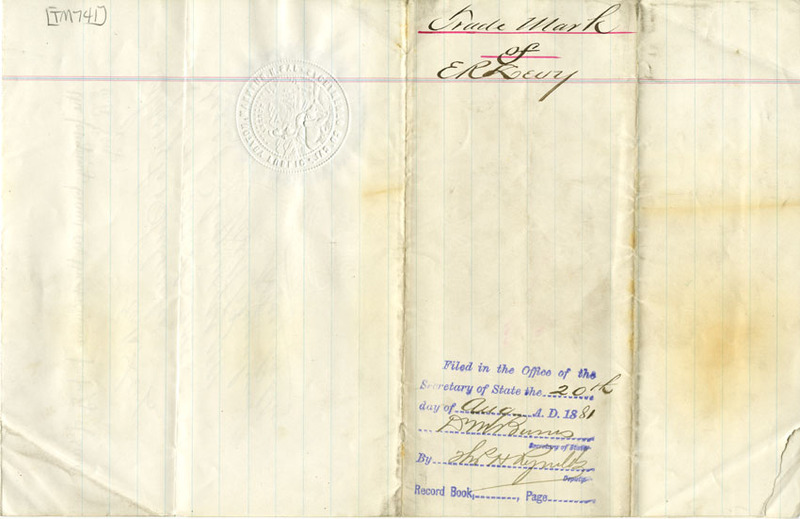 [TM741]
Trade Mark
of
E R Levy
Filed in the Office of the
Secretary of State the 20th
day of Aug A. D. 1881
D M Burns
Secretary of State
By Thos H Reynolds
Deputy
Record Book, , Page